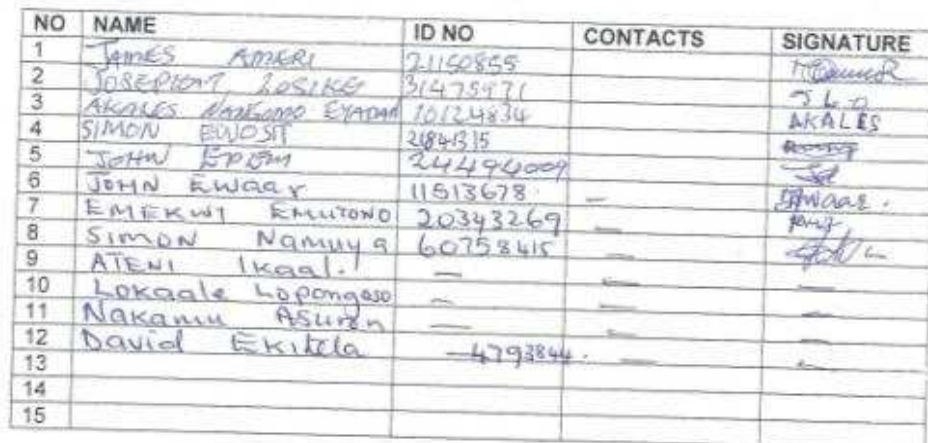 NO NAME ID NO CONTACTS SIGNATURE
1 JAMES AMERI 21150855
2 JOSEPHAT LOSIKE 31475971 J L O
3 AKALES NANGOMO EYADAN 10124834 AKALES
4 SIMON EWOSIT 21841315
5 JOHN EPEM 24494009
6 JOHN EWAAR 11513678 — EWAAR.
7 EMEKWI EMUTONO 20343269 —
8 SIMON Namuya 60758415 —
9 ATENI IKaal. — — —
10 LOKaale Lopongaso — — —
11 Nakamu ASURON — — —
12 David EKITELA 4793844. — —
13
14
15